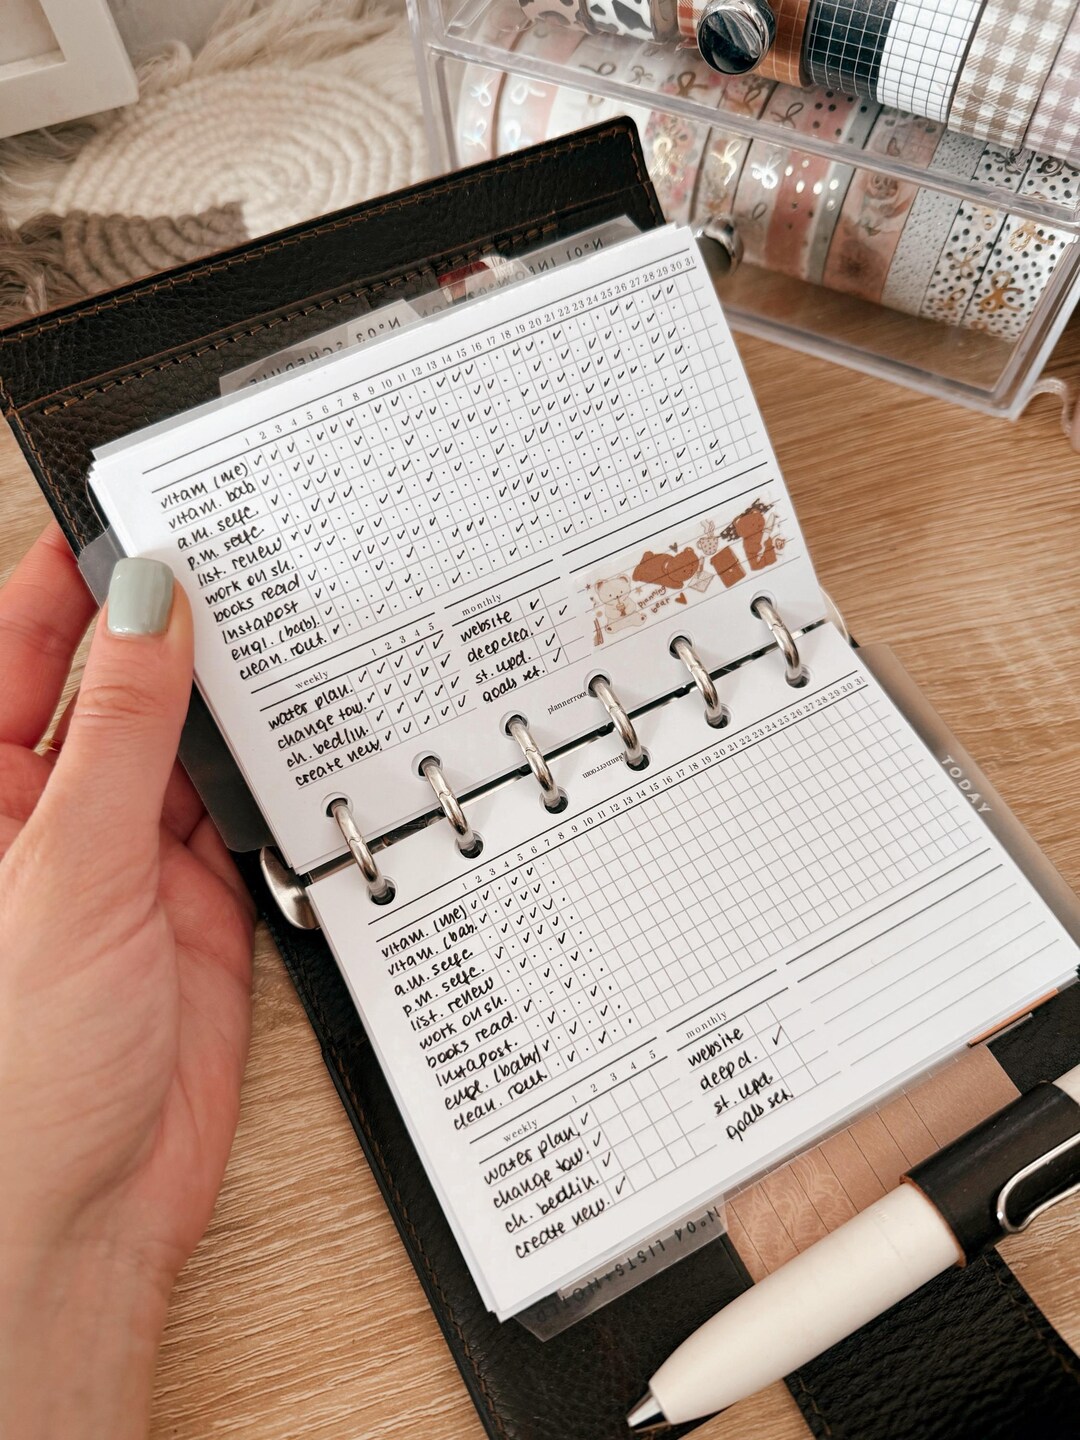 1 2 3 4 5 6 7 8 9 10 11 12 13 14 15 16 17 18 19 20 21 22 23 24 25 26 27 28 29 30 31
vitam (me)
vitam. bab
a.m. selfc.
p.m. selfc.
list. renew
work on sh.
books read
instapost
engl. (bab).
clean. rout.
weekly 1 2 3 4 5
water plan.
change tow.
ch. bedlin.
create new.
monthly
website
deep clea.
st. upd.
goals set.
planning bear
plannerroom
plannerroom
1 2 3 4 5 6 7 8 9 10 11 12 13 14 15 16 17 18 19 20 21 22 23 24 25 26 27 28 29 30 31
vitam. (me)
vitam. (bab.
a.m. selfc.
p.m. selfc.
list. renew
work on sh.
books read.
instapost.
engl. (baby)
clean. rout.
weekly 1 2 3 4 5
water plan.
change tow.
ch. bedlin.
create new.
monthly
website
deep cl.
st. upd.
goals set.
TODAY
N°03 SCHEDULE
N°04 LISTS+NOTES